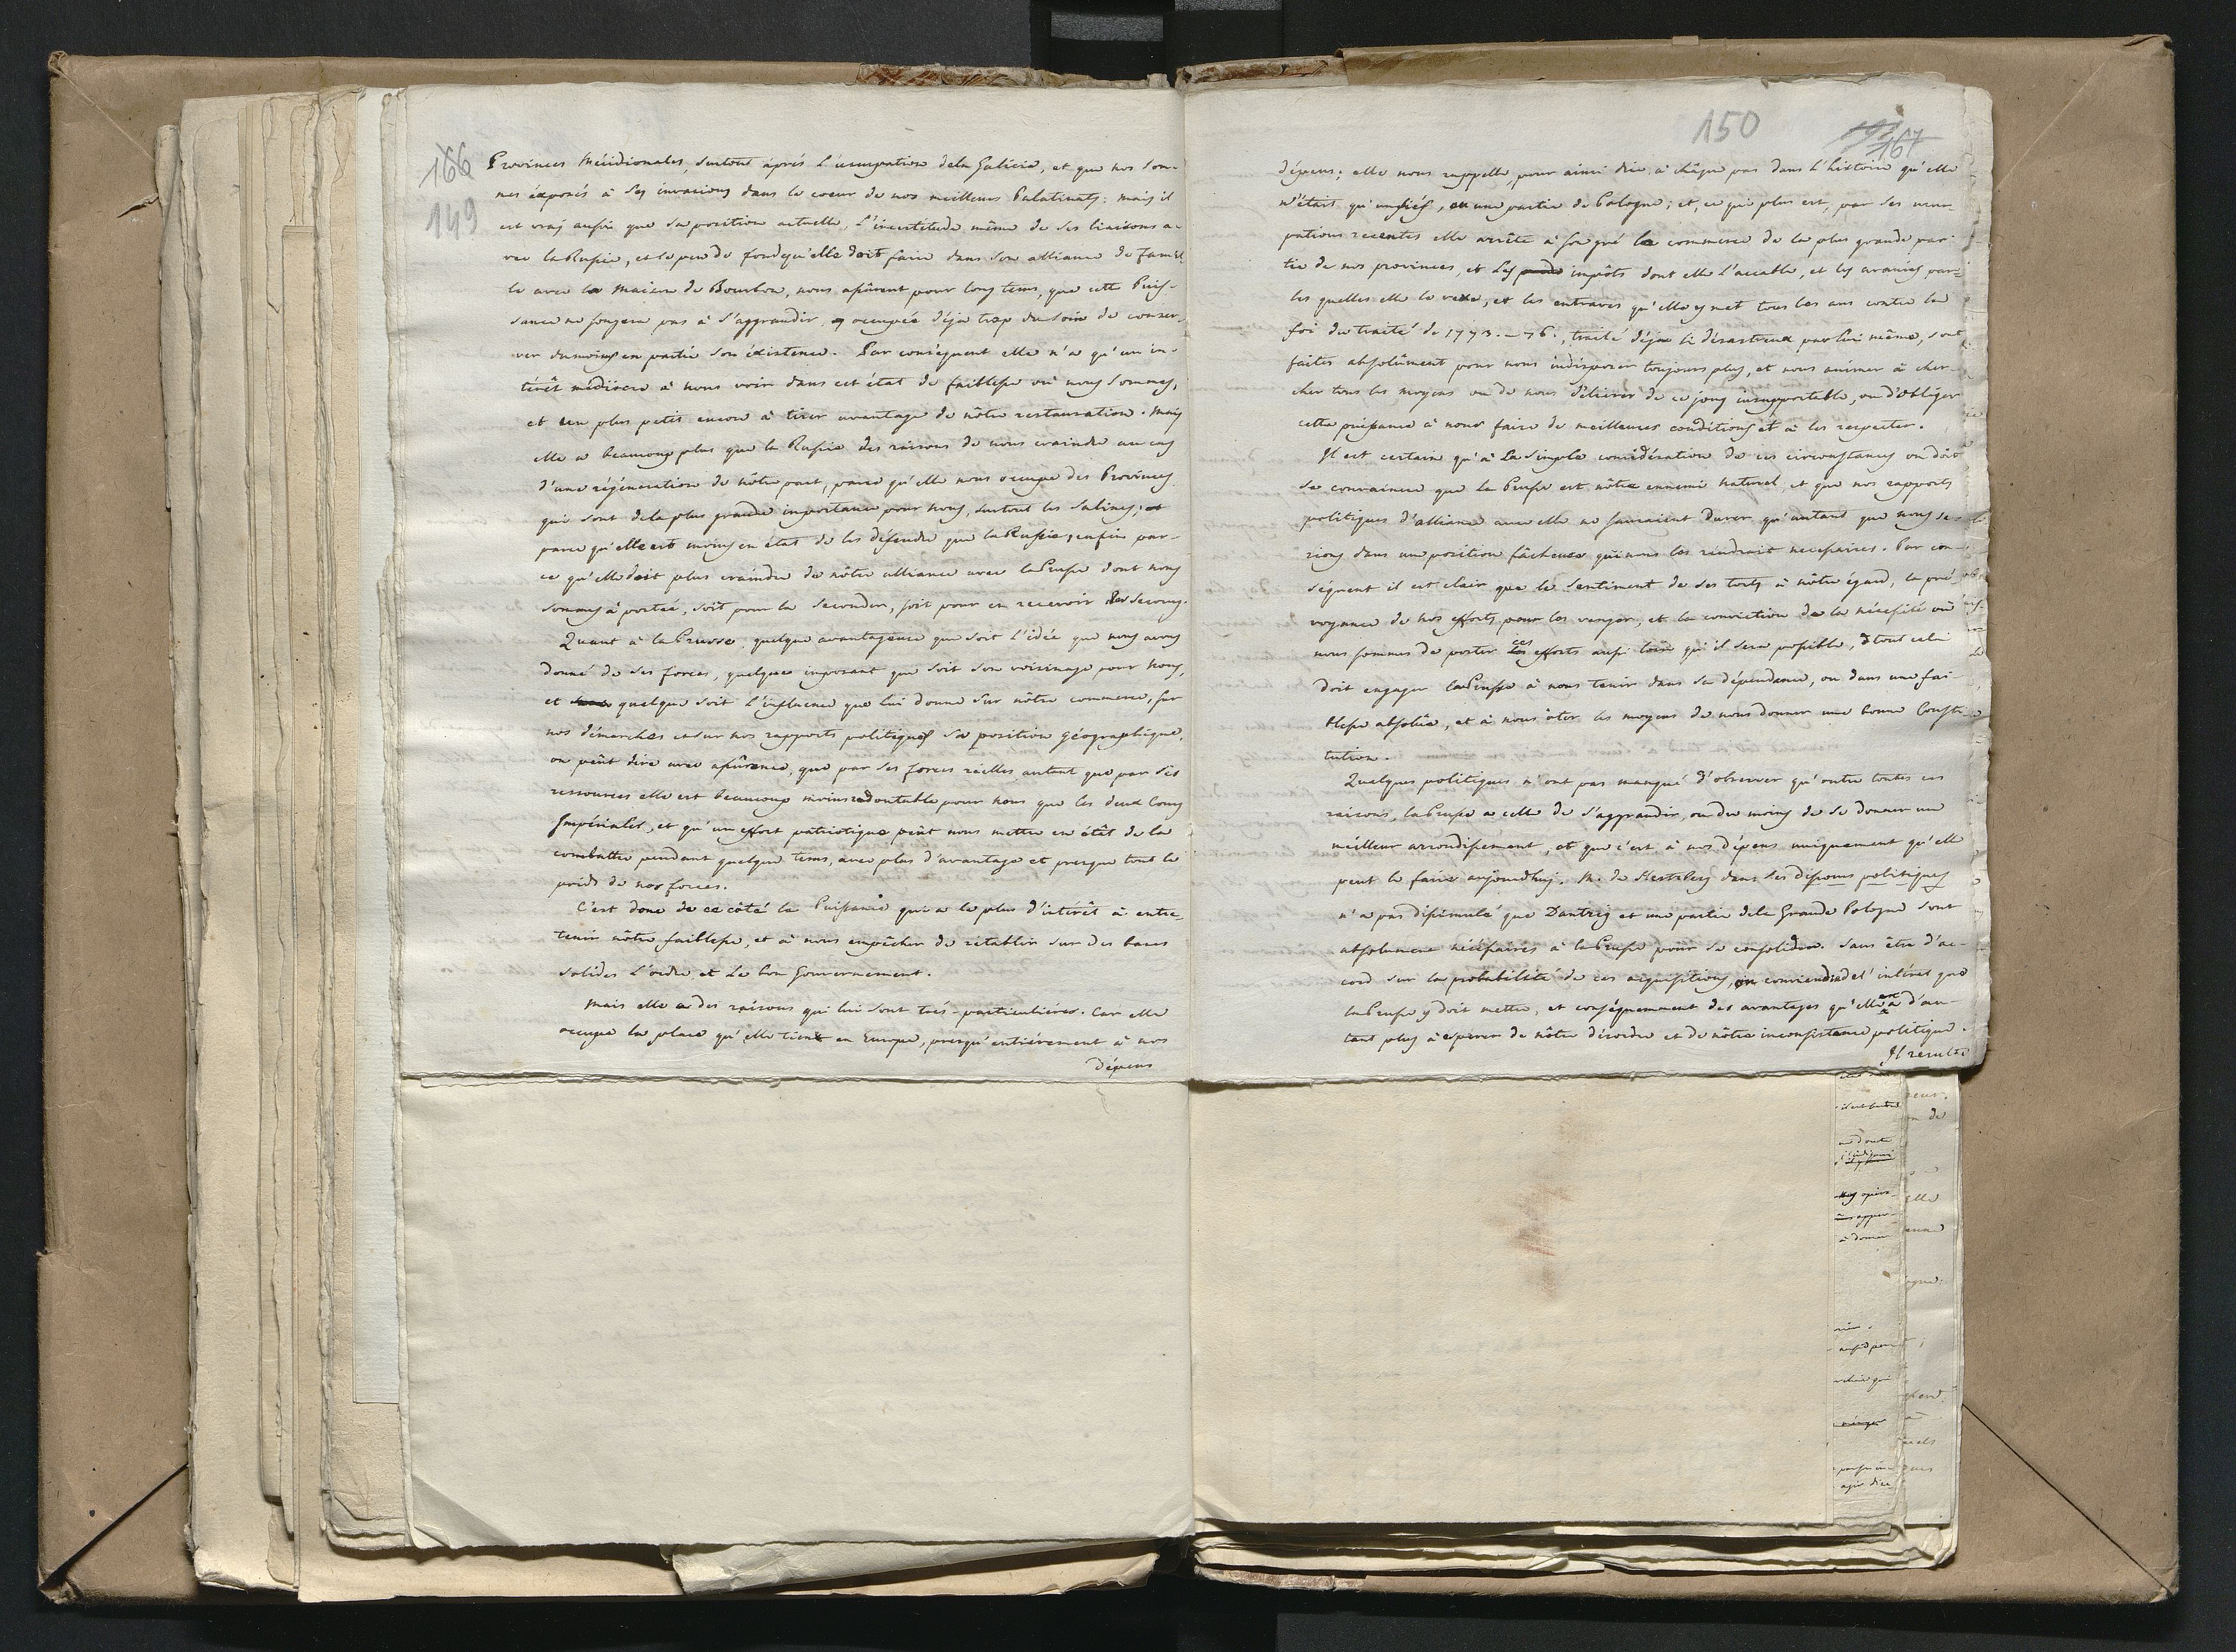 166
149
Provinces Méridionales, surtout après l'usurpation dela Galicie, et que nos som-
mes éxposés à ses invasions dans le coeur de nos meilleurs Palatinats: mais il
est vraj aussi que sa position actuelle, l'incertitude même de ses liaisons a-
vec la Russie, et le peu de fond qu'elle doit faire dans son alliance de famil-
le avec la maison de Bourbon, nous assûrent pour long tems, que cette Puis-
sance ne songera pas à s'aggrandir, occupée déja trop du soin de conser-
ver dumoins en partie son éxistence. Par conséquent elle n'a qu'un in-
térêt médiocre à nous voir dans cet état de faiblesse où nous sommes,
et un plus petit encore à tirer avantage de nôtre restauration. mais
elle a beaucoup plus que la Russie des raisons de nous craindre au cas
d'une régéneration de nôtre part, parce qu'elle nous occupe des Provinces
qui sont dela plus grande importance pour nous, surtout les Salines; et
parce qu'elle est moins en état de les défendre que la Russie; enfin par-
ce qu'elle doit plus craindre de nôtre alliance avec la Prusse dont nous
sommes à portée, soit pour la seconder, soit pour en recevoir des secours.
Quant à la Prusse, quelque avantageuse que soit l'idée que nous avons
donné de ses forces, quelque imposant que soit son voisinage pour nous,
et quelque soit l'influence que lui donne sur nôtre commerce, sur
nos démarches et sur nos rapports politiques sa position géographique,
on peût dire avec assûrance, que par ses forces réelles autant que par ses
ressources elle est beaucoup moins redoutable pour nous que les deux Cours
Impériales, et qu'un effort patriotique peût nous mettre en étât de la
combattre pendant quelque tems, avec plus d'avantage et presque tout le
poids de nos forces.
C'est donc de ce côté la Puissance qui a le plus d'intérêt à entre-
tenir nôtre faiblesse, et à nous empêcher de rétablir sur des bases
solides l'ordre et le bon Gouvernement.
Mais elle a des raisons qui lui sont très-particulières. Car elle
occupe la place qu'elle tient en Europe, presqu'entiérement à nos
dépens
150
167
dépens; elle nous rappelle, pour ainsi dire, à châque pas dans l'histoire qu'elle
n'était qu'un fief, ou une partie de Pologne; et, ce qui plus est, par ses usur-
pations recentes elle arrête à son gré le commerce de la plus grande par-
tie de nos provinces, et les impôts dont elle l'accable, et les avanies par
les quelles elle le vexe, et les entraves qu'elle y met tous les ans contre la
foi du traité de 1773.-76., traité déja si désastreux par lui même, sont
faites absolûment pour nous indisposer toujours plus, et nous animer à cher-
cher tous les moyens ou de nous délivrer de ce joug insupportable, ou d'obliger
cette puissance à nous faire de meilleures conditions et à les respecter.
Il est certain qu'à la simple considération de ces circonstances on doit
se convaincre que la Prusse est nôtre ennemi naturel, et que nos rapports
politiques d'alliance avec elle ne sauraient durer qu'autant que nous se-
rions dans une position fâcheuse qui nous les rendroit necessaires. Par con-
séquent il est clair que le sentiment de ses torts à nôtre égard, la pré
voyance de nos efforts pour les vanger, et la conviction de la nécessité où
nous sommes de porter ces efforts aussi loin qu'il sera possible, tout cela
doit engager la Prusse à nous tenir dans sa dépendance, ou dans une fai-
blesse absolüe, et à nous ôter les moyens de nous donner une bonne Consti-
tution.
Quelques politiques n'ont pas manqué d'observer qu'outre toutes ces
raisons, la Prusse a celle de s'aggrandir, ou du moins de se donner un
meilleur arrondissement, et que c'est à nos dépens uniquement qu'elle
peut le faire aujourdhuj. M. de Hertzberg dans ses discours politiques
n'a pas dissimulé que Dantzig et une partie dela Grande Pologne sont
absolument nécessaires à la Prusse pour se consolider. Sans être d'ac-
cord sur la probabilité de ces acquisitions, on conviendra del'intérêt que
la Prusse y doit mettre, et conséquemment des avantages qu'elle a d'au-
tant plus à esperer de nôtre désordre et de nôtre inconsistance politique.
Il résulte